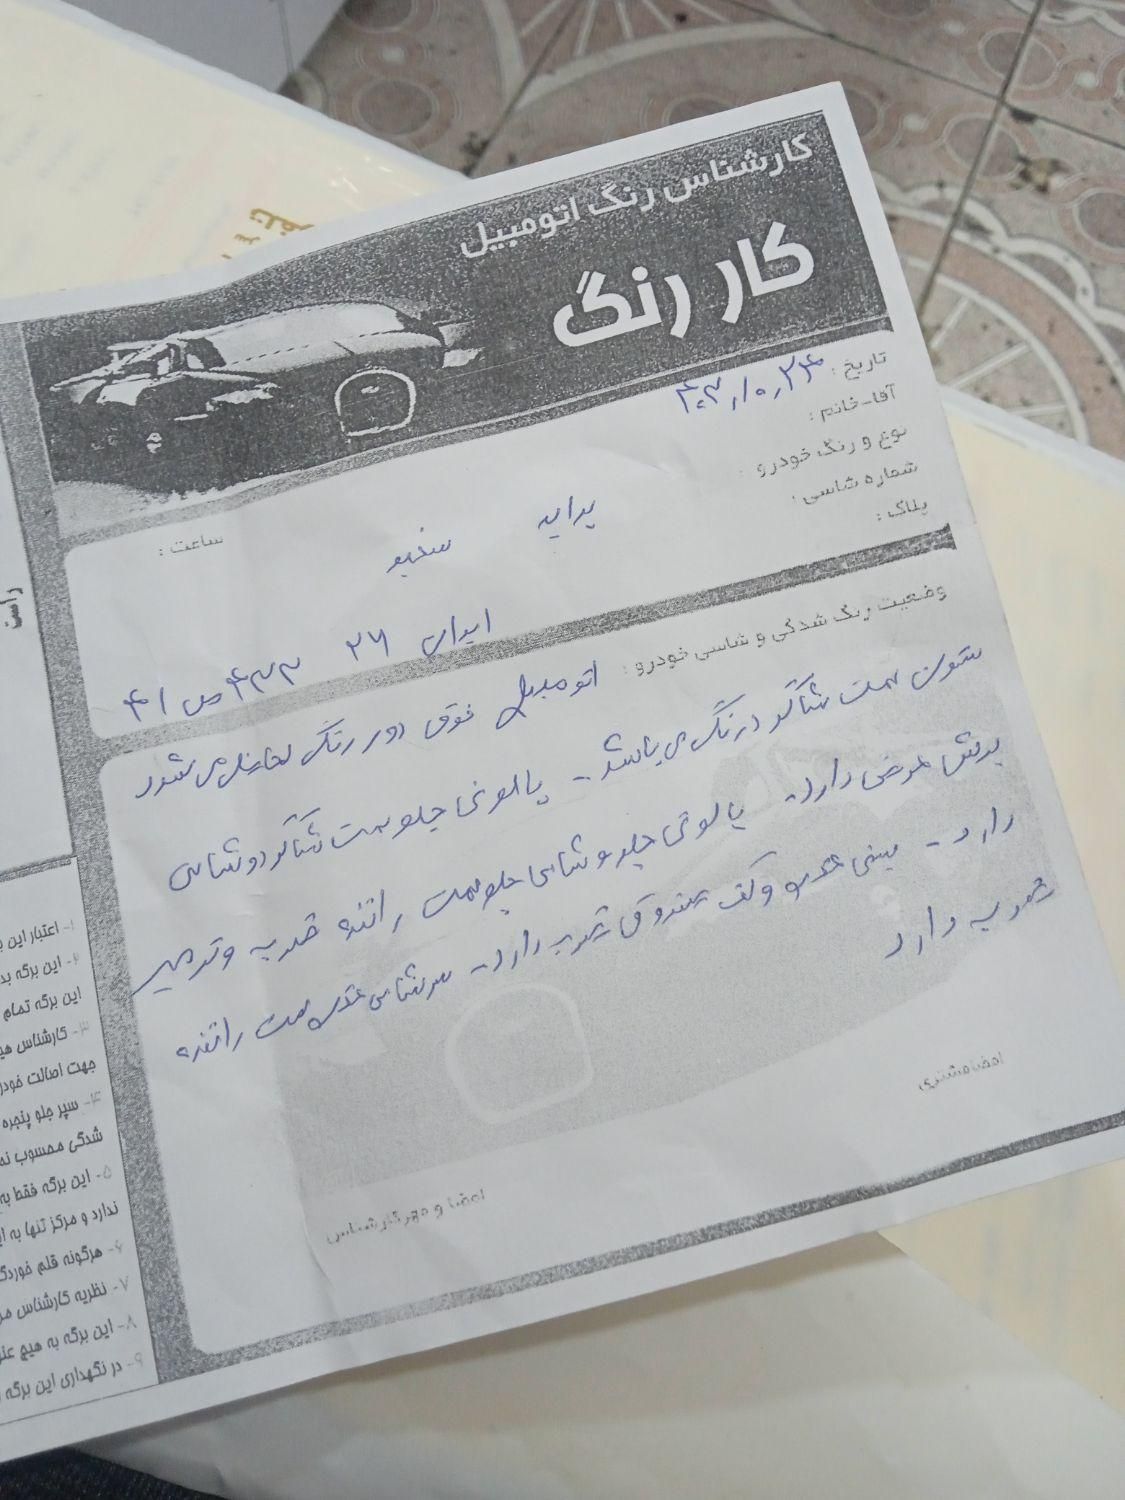 کارشناس رنگ اتومبیل
کار رنگ
تاریخ : ۴۰۳،۱۰،۲۴
آقا-خانم :
نوع و رنگ خودرو : پراید سفید
ساعت :
شماره شاسی :
پلاک : ایران ۲۶ ۴۳۳ ص ۴۱
وضعیت رنگ شدگی و شاسی خودرو : اتومبیل فوق دور رنگ می شود
ستون سمت شاگرد رنگ می باشد - پالونی جلو سمت شاگرد و شاسی
برش عرضی دارد - پالونی جلو و شاسی جلو سمت راننده ضربه و ترمیم
دارد - سینی عقب و کف صندوق ضربه دارد - سرشاسی عقب سمت راننده
ضربه دارد
امضا مشتری
امضا و مهر کارشناس
راست
۱- اعتبار این ب
۲- این برگه بد
این برگه تمام
۳- کارشناس هی
جهت اصالت خودر
۴- سپر جلو پنجره
شدگی محسوب نم
۵- این برگه فقط به
ندارد و مرکز تنها به ای
۶- هرگونه قلم خوردگ
۷- نظریه کارشناس مر
۸- این برگه به هیچ عنو
۹- در نگهداری این برگه